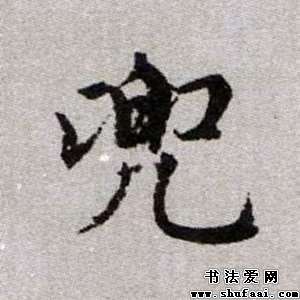 兜
书法爱网
www.shufaai.com